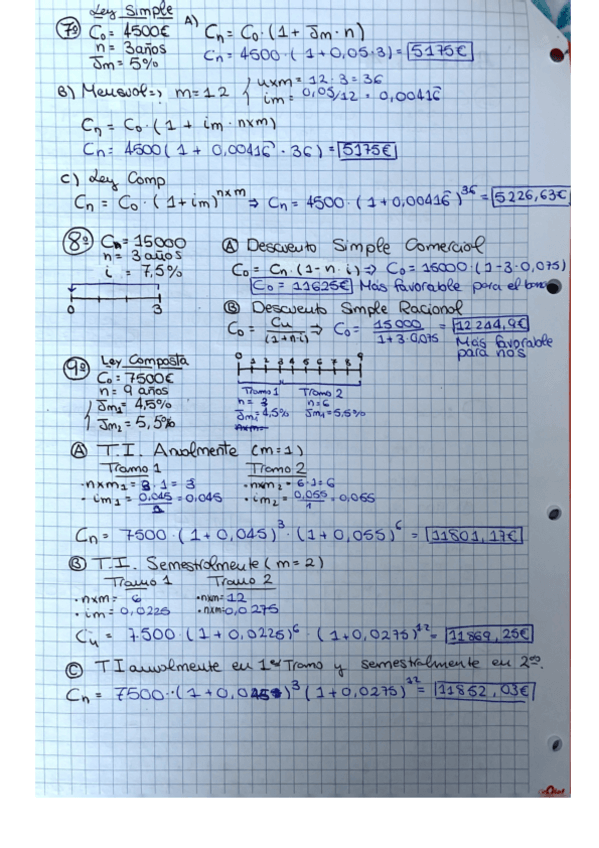 Ley Simple
7º C₀ = 4500€
n = 3 años
Jm = 5%
A) Cn = C₀ · (1 + Jm · n)
Cn = 4500 · (1 + 0,05 · 3) = 5175€
B) Mensual => m = 12 { nxm = 12 · 3 = 36
im = 0,05/12 = 0,00416
Cn = C₀ · (1 + im · nxm)
Cn = 4500 (1 + 0,00416 · 36) = 5175€
C) Ley Comp
Cn = C₀ · (1 + im)^nxm => Cn = 4500 · (1 + 0,00416)^36 = 5226,63€
8º Cn = 15000
n = 3 años
i = 7,5%
0 3
A Descuento Simple Comercial
C₀ = Cn · (1 - n · i) => C₀ = 15000 · (1 - 3 · 0,075)
C₀ = 11625€ Más favorable para el banco
B Descuento Simple Racional
C₀ = Cn / (1 + n · i) => C₀ = 15000 / 1 + 3 · 0,075 = 12244,9€
Más favorable
para nós
9º Ley Composta
C₀ = 7500€
n = 9 años
{ Jm₁ = 4,5%
Jm₂ = 5,5%
0 1 2 3 4 5 6 7 8 9
Tramo 1 Tramo 2
n = 3 n = 6
Jm₁ = 4,5% Jm₁ = 5,5%
A T.I. Anualmente (m = 1)
Tramo 1 Tramo 2
· nxm₁ = 3 · 1 = 3 · nxm₂ = 6 · 1 = 6
· im₁ = 0,045/1 = 0,045 · im₂ = 0,055/1 = 0,055
Cn = 7500 · (1 + 0,045)³ · (1 + 0,055)⁶ = 11801,17€
B T.I. Semestralmente (m = 2)
Tramo 1 Tramo 2
· nxm = 6 · nxm = 12
· im = 0,0225 · nxm = 0,0275
Cn = 7.500 · (1 + 0,0225)⁶ · (1 + 0,0275)¹² = 11869,25€
C T I anualmente en 1º Tramo y semestralmente en 2º.
Cn = 7500 · (1 + 0,045)³ (1 + 0,0275)¹² = 11852,03€